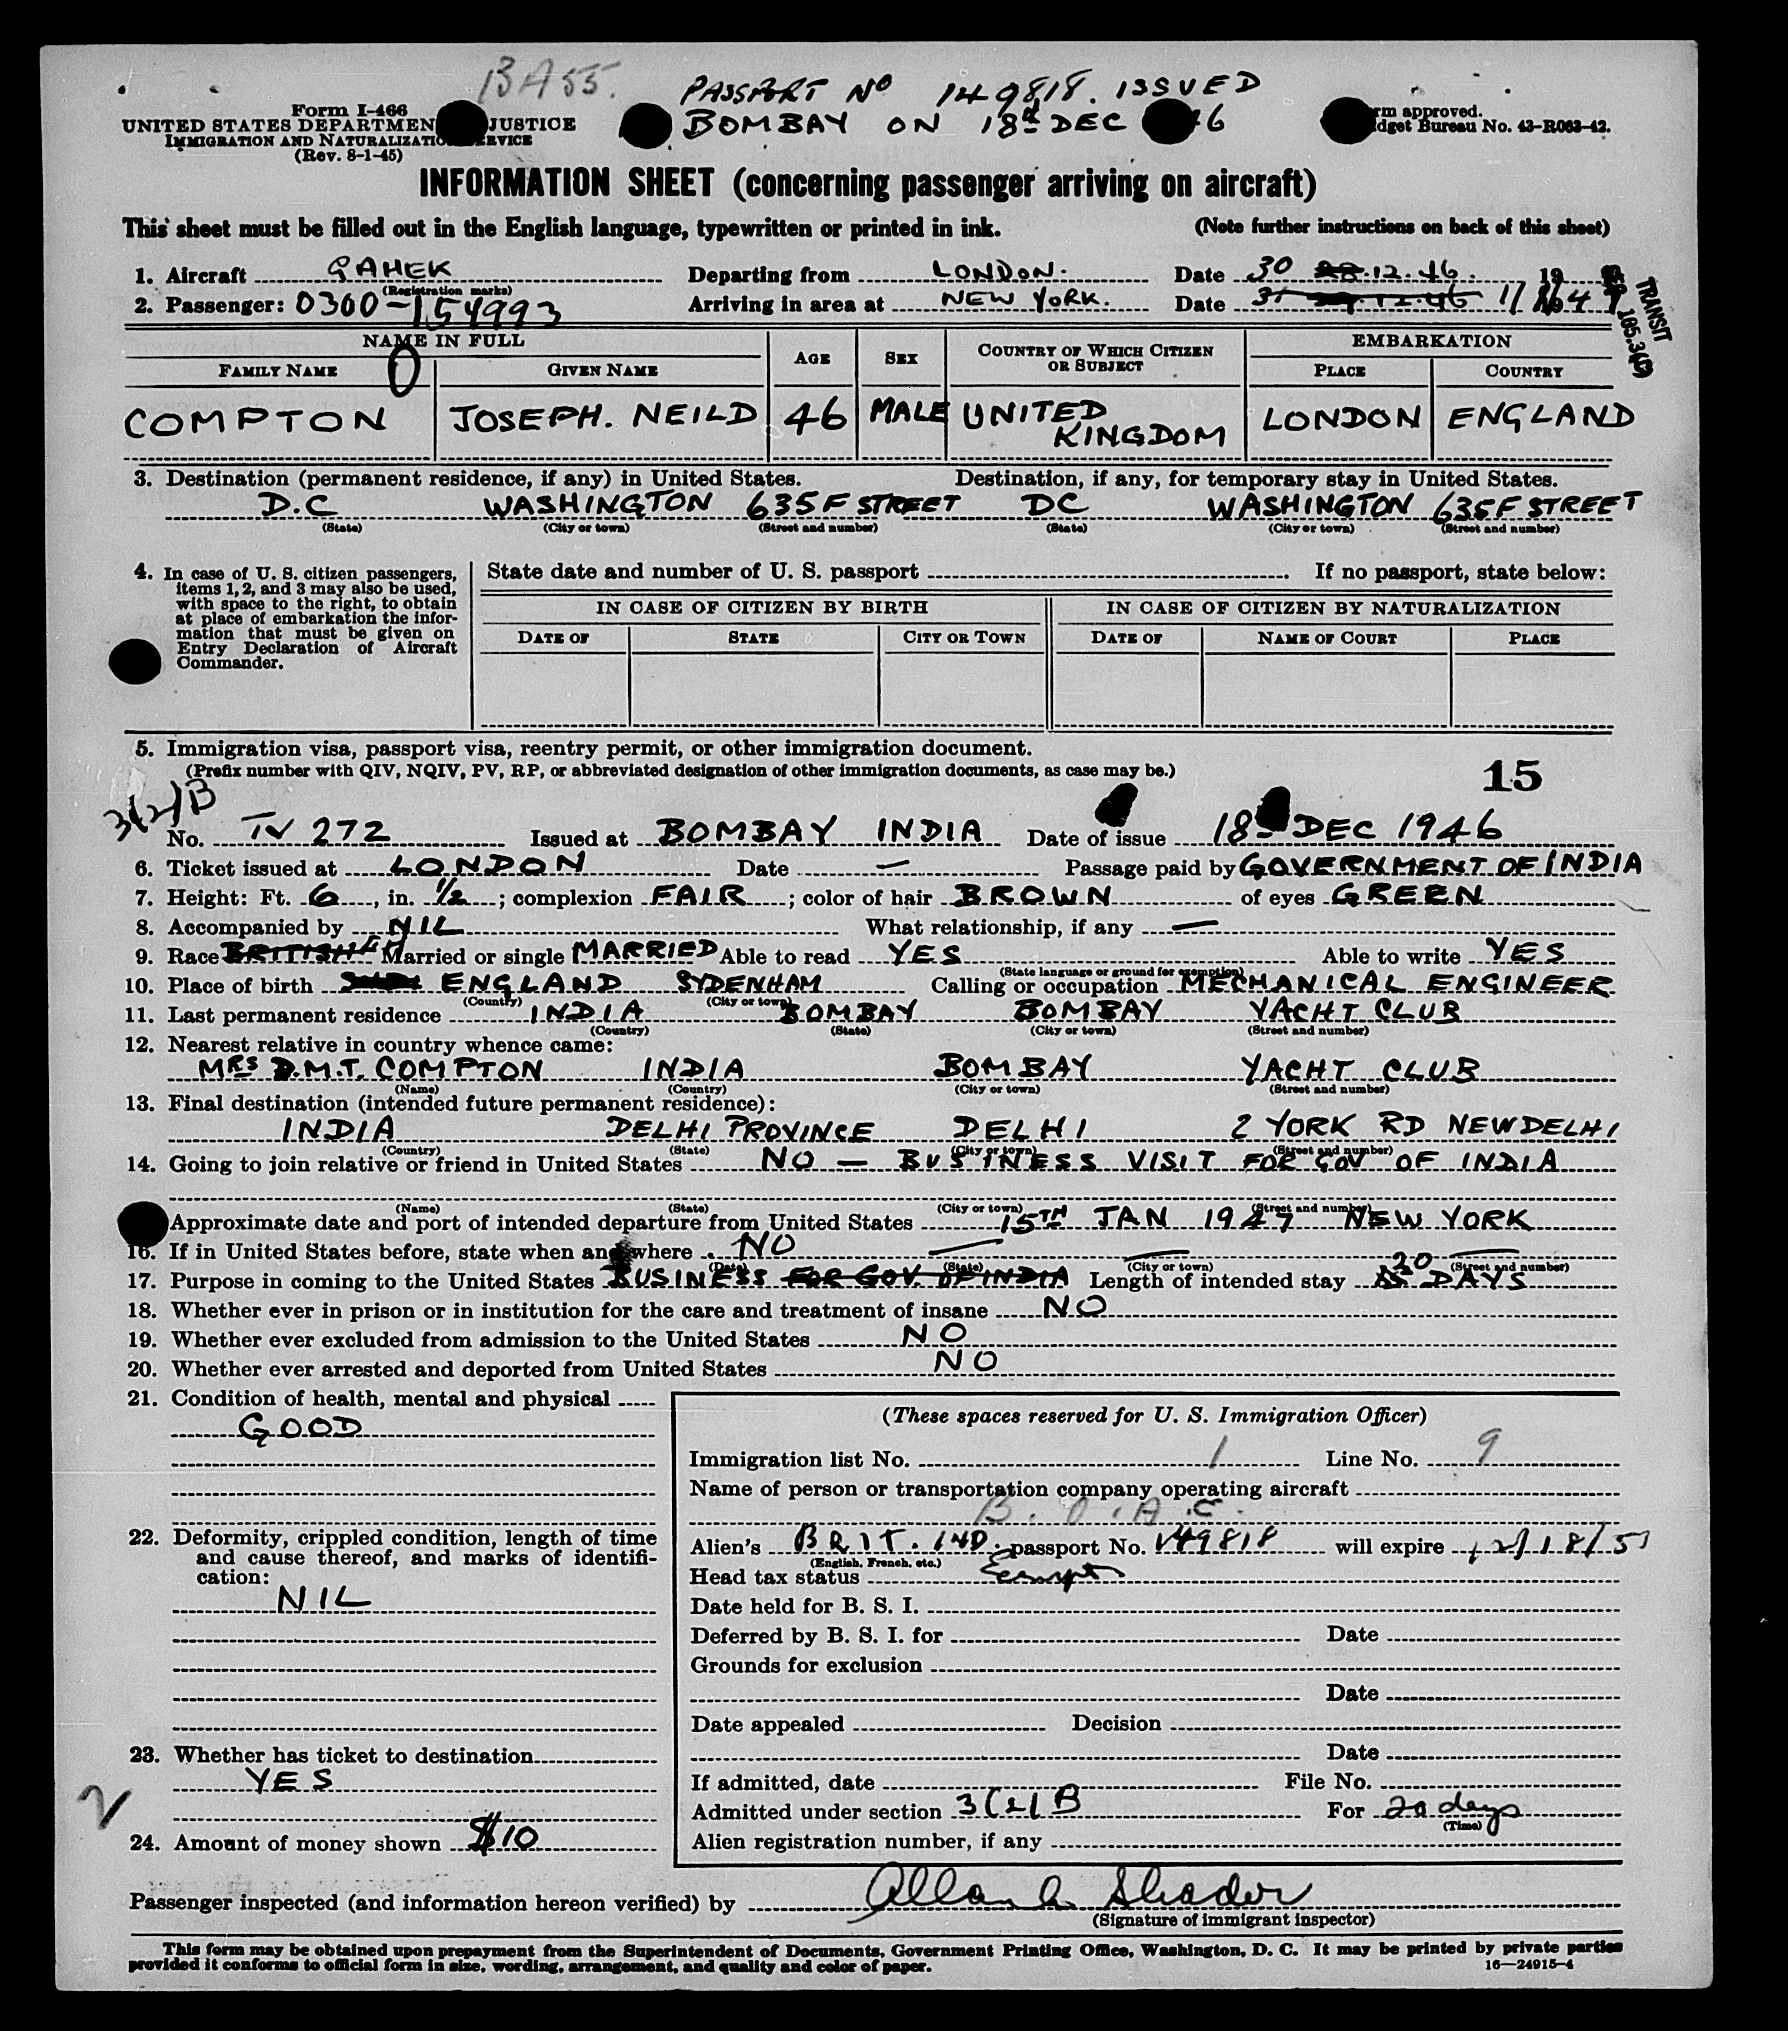 BA55.
PASSPORT No 149818. ISSUED
BOMBAY ON 18th DEC 46
Form I-466
UNITED STATES DEPARTMEN JUSTICE
IMMIGRATION AND NATURALIZATIO ERVICE
(Rev. 8-1-45)
rm approved.
dget Bureau No. 43-R063-42.
INFORMATION SHEET (concerning passenger arriving on aircraft)
This sheet must be filled out in the English language, typewritten or printed in ink. (Note further instructions on back of this sheet)
1. Aircraft GAHEK Departing from LONDON. Date 30 12.46. 19
(Registration marks)
2. Passenger: 0300-154993 Arriving in area at NEW YORK. Date 31 12.46 1/1/47
TRANSIT
105.3(3)
NAME IN FULL AGE SEX COUNTRY OF WHICH CITIZEN OR SUBJECT EMBARKATION
FAMILY NAME GIVEN NAME PLACE COUNTRY
COMPTON JOSEPH. NEILD 46 MALE UNITED KINGDOM LONDON ENGLAND
3. Destination (permanent residence, if any) in United States. Destination, if any, for temporary stay in United States.
D.C WASHINGTON 635 F STREET DC WASHINGTON 635 F STREET
(State) (City or town) (Street and number) (State) (City or town) (Street and number)
4. In case of U. S. citizen passengers, items 1, 2, and 3 may also be used, with space to the right, to obtain at place of embarkation the information that must be given on Entry Declaration of Aircraft Commander.
State date and number of U. S. passport . If no passport, state below:
IN CASE OF CITIZEN BY BIRTH IN CASE OF CITIZEN BY NATURALIZATION
DATE OF STATE CITY OR TOWN DATE OF NAME OF COURT PLACE
5. Immigration visa, passport visa, reentry permit, or other immigration document.
(Prefix number with QIV, NQIV, PV, RP, or abbreviated designation of other immigration documents, as case may be.)
15
3(2)B
No. TV 272 Issued at BOMBAY INDIA Date of issue 18 DEC 1946
6. Ticket issued at LONDON Date — Passage paid by GOVERNMENT OF INDIA
7. Height: Ft. 6, in. 1/2; complexion FAIR; color of hair BROWN of eyes GREEN
8. Accompanied by NIL What relationship, if any —
9. Race BRITISH Married or single MARRIED Able to read YES Able to write YES
(State language or ground for exemption)
10. Place of birth ENGLAND SYDENHAM Calling or occupation MECHANICAL ENGINEER
(Country) (City or town)
11. Last permanent residence INDIA BOMBAY BOMBAY YACHT CLUB
(Country) (State) (City or town) (Street and number)
12. Nearest relative in country whence came:
MRS D.M.T. COMPTON INDIA BOMBAY YACHT CLUB
(Name) (Country) (City or town) (Street and number)
13. Final destination (intended future permanent residence):
INDIA DELHI PROVINCE DELHI 2 YORK RD NEW DELHI
(Country) (State) (City or town) (Street and number)
14. Going to join relative or friend in United States NO — BUSINESS VISIT FOR GOV OF INDIA
(Name) (State) (City or town) (Street and number)
Approximate date and port of intended departure from United States 15TH JAN 1947 NEW YORK
16. If in United States before, state when and where NO — — —
(Date) (State) (City or town) (Street and number)
17. Purpose in coming to the United States BUSINESS FOR GOV. OF INDIA Length of intended stay 20 DAYS
18. Whether ever in prison or in institution for the care and treatment of insane NO
19. Whether ever excluded from admission to the United States NO
20. Whether ever arrested and deported from United States NO
21. Condition of health, mental and physical
GOOD
22. Deformity, crippled condition, length of time and cause thereof, and marks of identification:
NIL
23. Whether has ticket to destination
YES
2
24. Amount of money shown $10
(These spaces reserved for U. S. Immigration Officer)
Immigration list No. 1 Line No. 9
Name of person or transportation company operating aircraft
B.O.A.C.
Alien's BRIT. IND. passport No. 149818 will expire 12/18/51
(English, French, etc.)
Head tax status Exempt
Date held for B. S. I.
Deferred by B. S. I. for Date
Grounds for exclusion
Date
Date appealed Decision
Date
If admitted, date File No.
Admitted under section 3(2)B For 20 days
(Time)
Alien registration number, if any
Passenger inspected (and information hereon verified) by Allan Shader
(Signature of immigrant inspector)
This form may be obtained upon prepayment from the Superintendent of Documents, Government Printing Office, Washington, D. C. It may be printed by private parties
provided it conforms to official form in size, wording, arrangement, and quality and color of paper.
16—24915-4